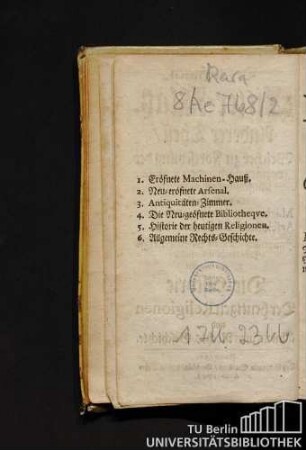 Rara
8 Ae 768/2
1. Eröfnete Machinen-Hauß.
2. Neu-eröfnete Arsenal.
3. Antiquitäten-Zimmer.
4. Die Neu-geöfnete Bibliotheqve.
5. Historie der heutigen Religionen.
6. Allgemeine Rechts-Geschichte.
TU Berlin
UNIVERSITÄTSBIBLIOTHEK